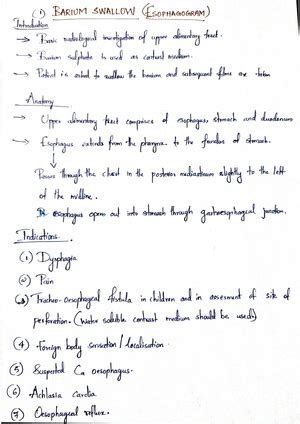 ① BARIUM SWALLOW (ESOPHAGOGRAM)
Introduction
→ Basic radiological investigation of upper alimentary tract.
→ Barium sulphate is used as contrast medium.
→ Patient is asked to swallow the barium and subsequent films are taken
Anatomy
→ Upper alimentary tract comprises of esophagus, stomach and duodenum
→ Esophagus extends from the pharynx to the fundus of stomach.
↓
Passes through the chest in the posterior mediastinum slightly to the left
of the midline.
esophagus open out into stomach through gastroesophageal junction.
Indications.
(1) Dysphagia
(2) Pain
(3) Tracheo-oesophageal fistula in children and in assesment of site of
perforation. (Water soluble contrast medium should be used)
(4) Foreign body sensation / localisation.
(5) Suspected Ca oesophagus.
(6) Achlasia cardia
(7) Oesophageal reflux.